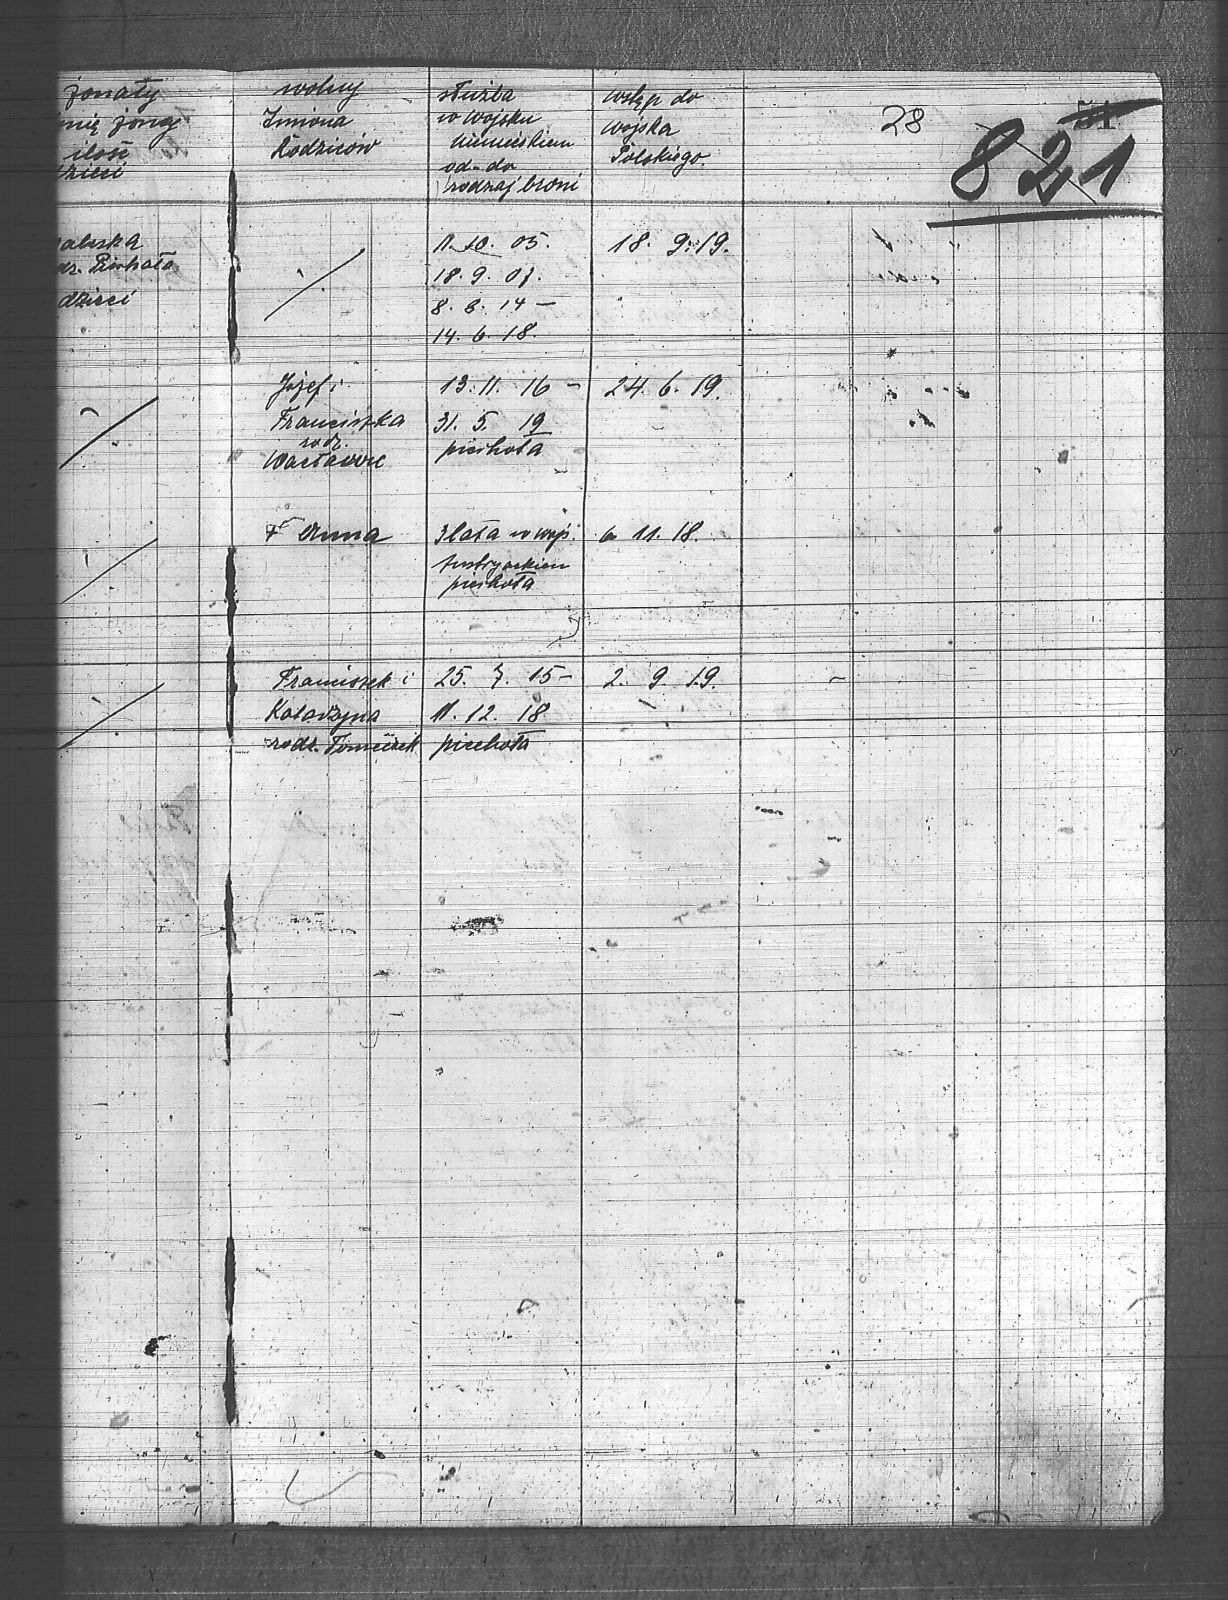 żonaty
żonę
ilość
dzieci
wolny
Imiona
Rodziców
służba
w wojsku
niemieckiem
od-do
rodzaj broni
wstęp do
Wojska
Polskiego.
28
51
821
dzieci
11. 10. 05.
18. 9. 07.
8. 8. 14 —
14. 6. 18.
18. 9. 19.
Józef i
Franciszka
rodz.
13. 11. 16 –
31. 5. 19
piechota
24. 6. 19.
Anna
3 lata w wojs.
austryackiem
piechota
6 11. 18.
Franciszek i
Katarzyna
rodz. Tomczek
25. 7. 15 –
11. 12. 18
piechota
2. 9. 19.